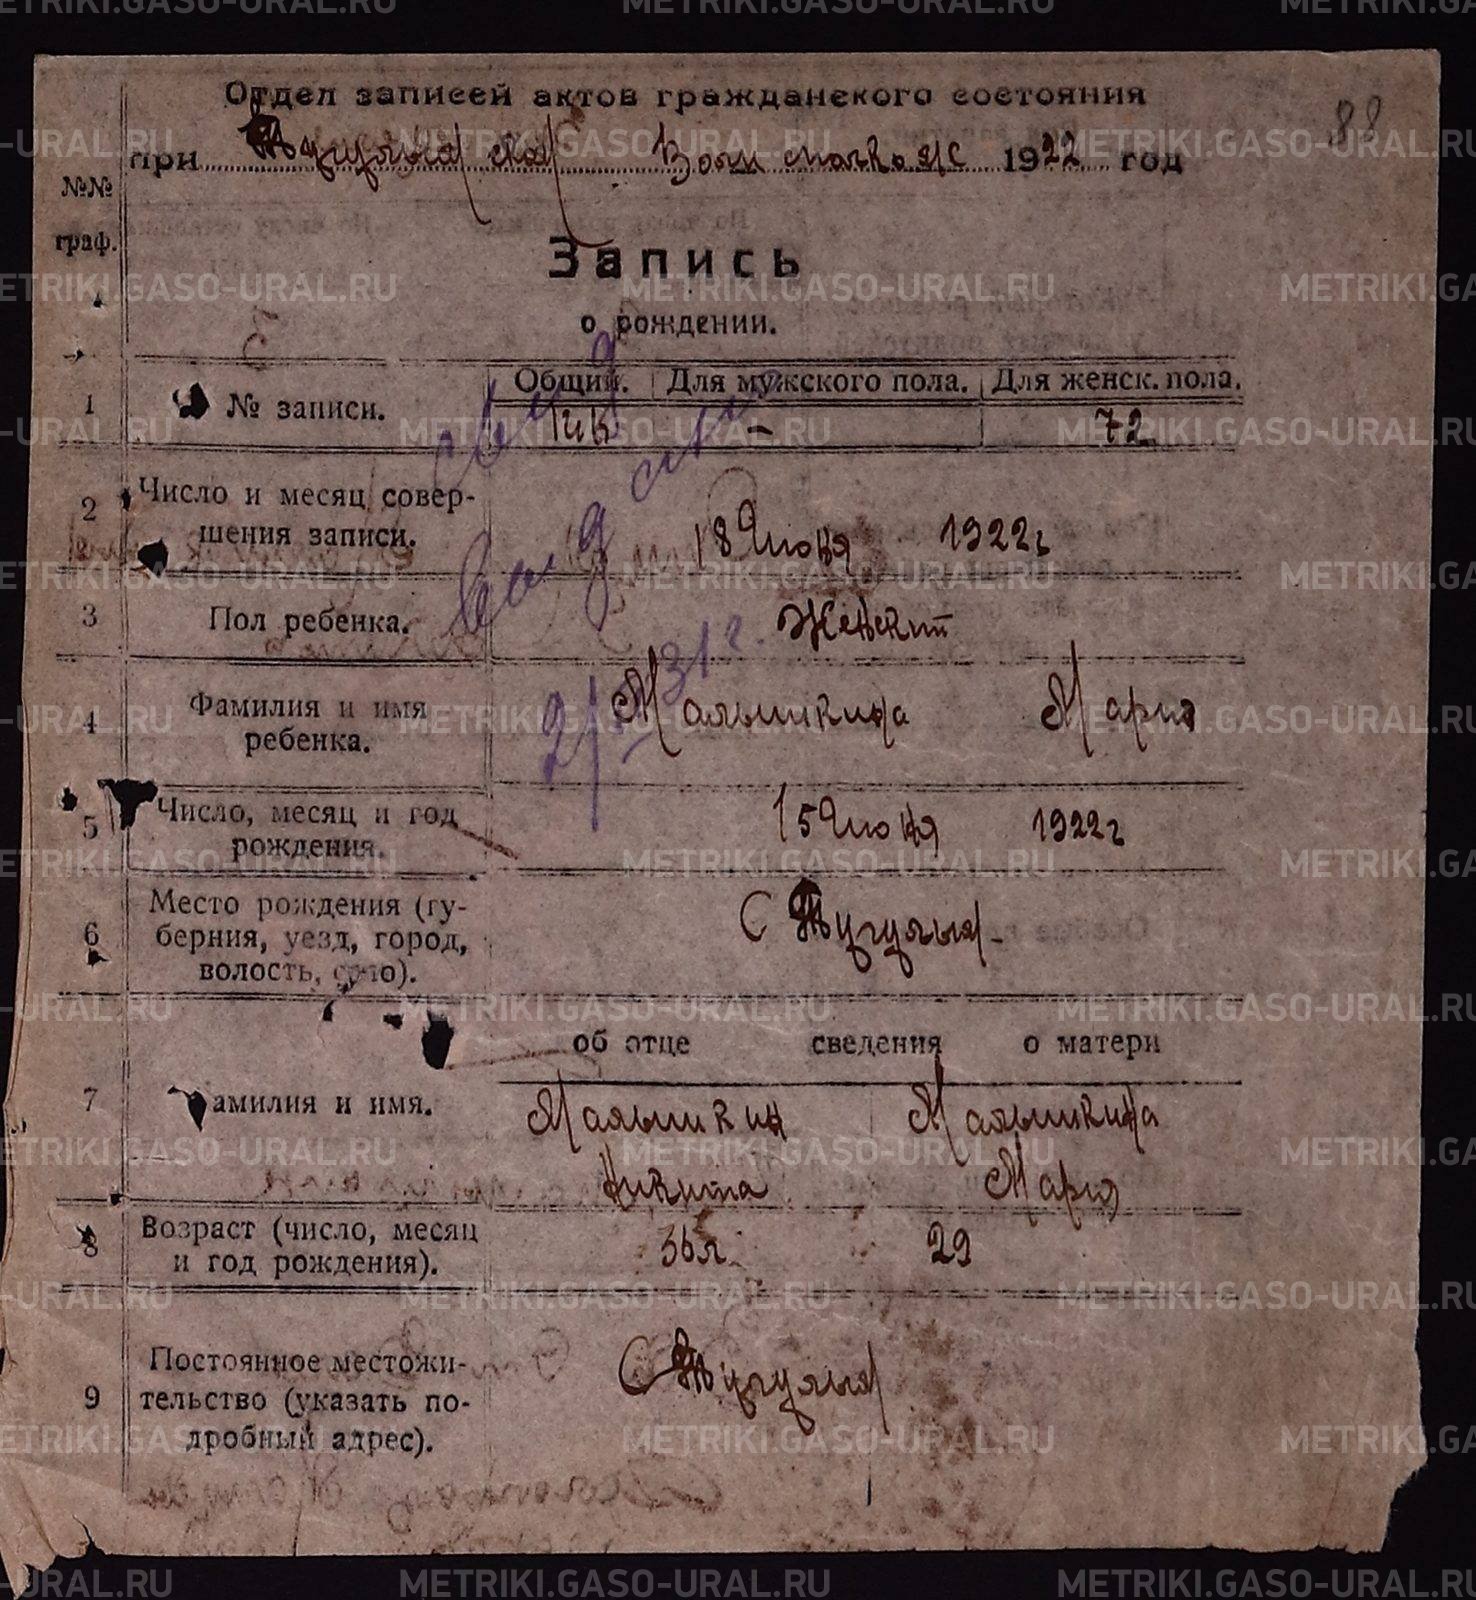 Отдел записей актов гражданского состояния
при Тугулымской Волисполкоме 1922 год
88
№№ граф.
Запись
о рождении.
1 № записи. Общий. Для мужского пола. Для женск. пола.
144 - 72
2 Число и месяц совер-
шения записи. 18 Июня 1922г
3 Пол ребенка. Женский
4 Фамилия и имя
ребенка. Мальшикина Мария
5 Число, месяц и год
рождения. 15 Июня 1922г
6 Место рождения (гу-
берния, уезд, город,
волость, село). С Тугулым
об отце сведения о матери
7 Фамилия и имя. Мальшикин Мальшикина
Никита Мария
8 Возраст (число, месяц
и год рождения). 36 л. 29
9 Постоянное местожи-
тельство (указать по-
дробный адрес). С Тугулым
выд
31 г.
METRIKI.GASO-URAL.RU